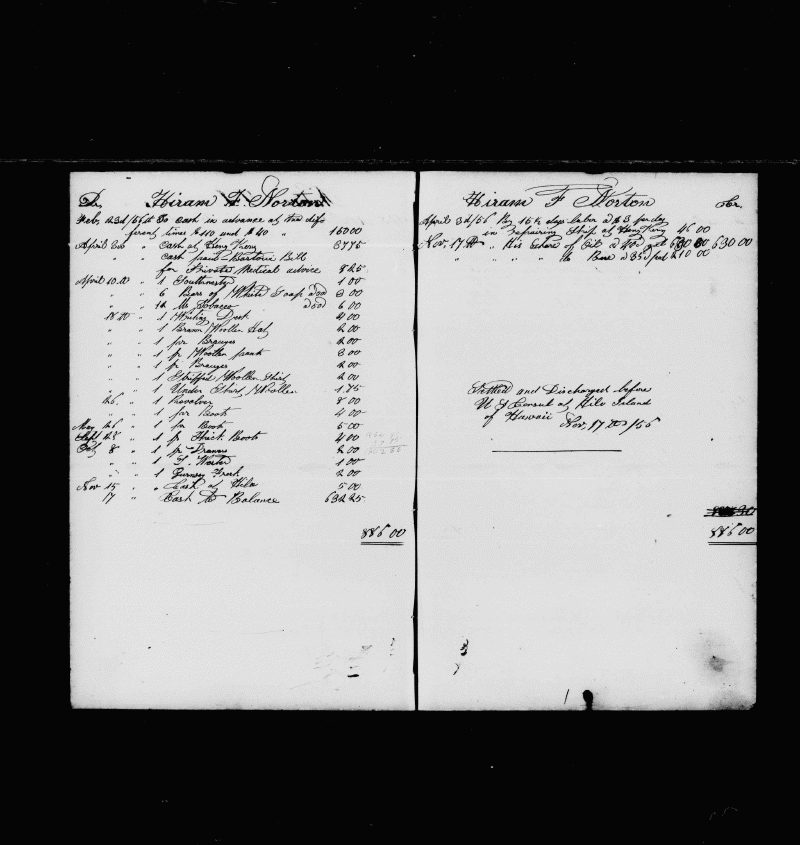 Dr. Hiram F Norton
Feby 23d/55 To Cash in advance at two dif
ferent times $110 and $40 " 150 00
April 3d " Cash at Hong Kong 37 75
Cash paid Doctors Bill
for Private Medical advice 8 25
April 10th " 1 Southwester 1 00
" " 6 Bars of White Soap 3 00
" " 12 lbs Tobacco 6 00
18th " 1 Writing Desk 4 00
" " 1 Brown Woollen Hat 2 00
" " 1 pr 2 00
" " 1 pr Woollen pants 3 00
" " 1 pr 2 00
" " 1 Striped Woollen Shirt 2 00
" " 1 Under Shirt Woollen 1 75
26 " 1 Revolver 8 00
" " 1 pair Boots 4 00
May 26 " 1 pr Boots 5 00
Sept 23 " 1 pr Thick Boots 4 00
Oct 8 " 1 pr Drawers 2 00
" " 1 1 00
" " 1 Gurnsey Frock 2 00
Nov 15 " Cash at Hilo 5 00
17 Cash to Balance 632 25
886 00
Hiram F Norton Cr.
April 3d/55 By 15 1/3 days labor a $3 per day
in Repairing Ship at Hong Kong 46 00
Nov. 17th " " his Share of Oil 630 00
" " " " do Bone 210 00
Settled and Discharged before
U S Consul at Hilo Island
of Hawaii Nov. 17th /55
886 00